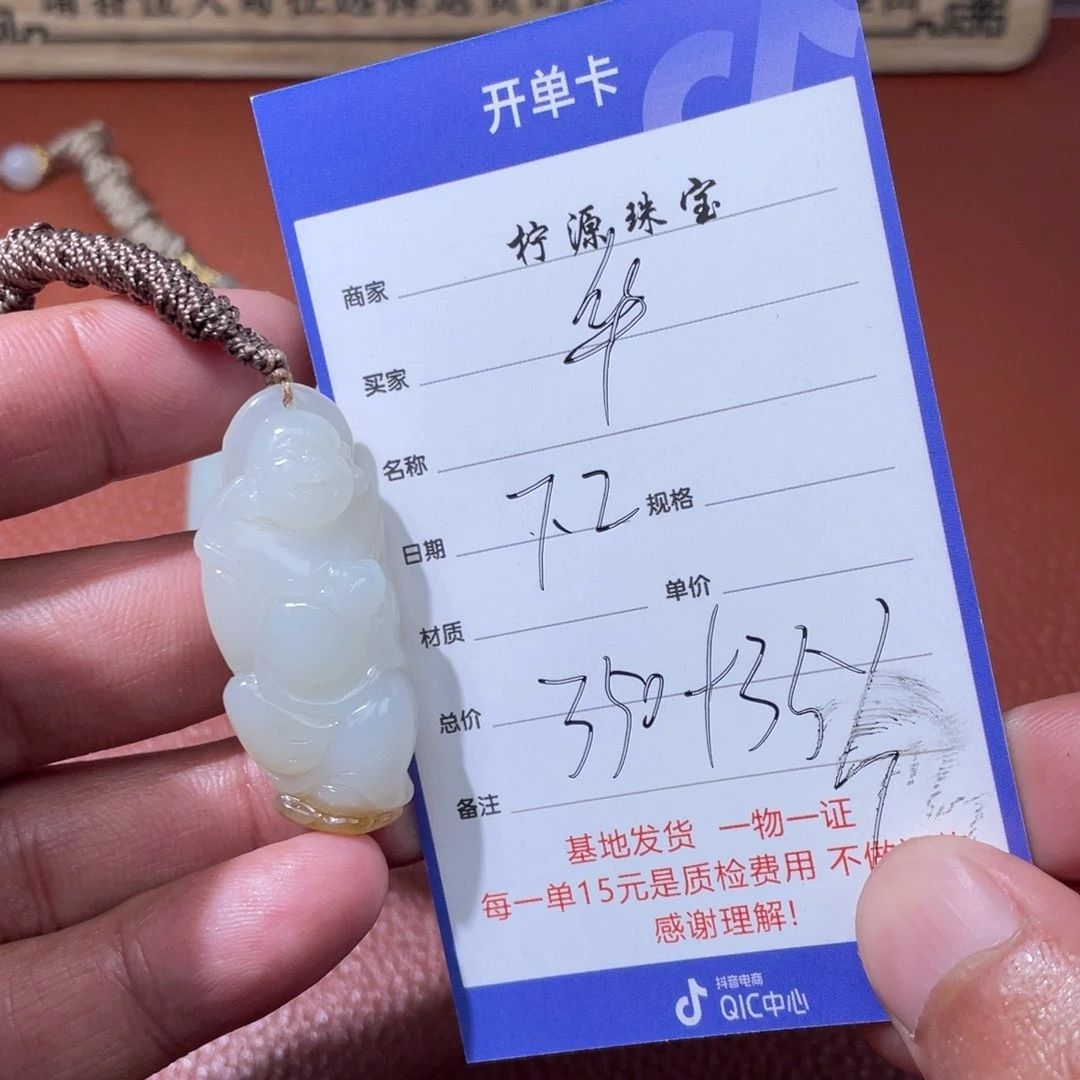 开单卡
商家 柠源珠宝
买家 华
名称
日期 7.2 规格
材质 单价
总价 350+35
备注
基地发货 一物一证
每一单15元是质检费用 不做
感谢理解！
抖音电商
QIC中心